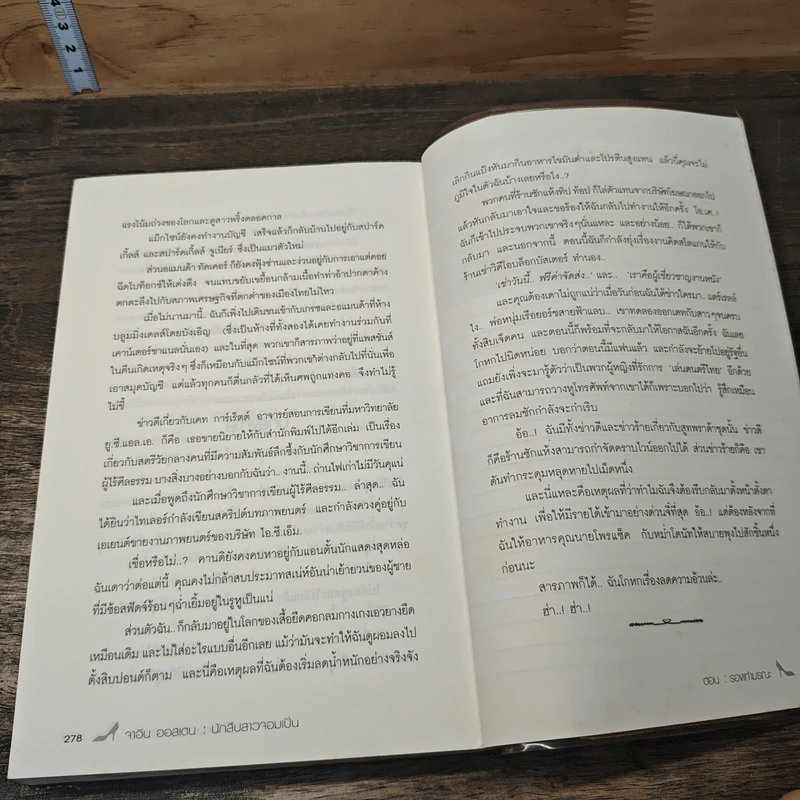 4
3
2
1
แรงโน้มถ่วงของโลกและดูสาวพริ้งตลอดกาล
แม็กไซน์ยังคงทำงานบัญชี เสร็จแล้วก็กลับบ้านไปอยู่กับสปาร์ค
เกิ้ลส์ และสปาร์คเกิ้ลส์ จูเนียร์ ซึ่งเป็นแมวตัวใหม่
ส่วนอแมนด้า ทัคเคอร์ ก็ยังคงฟุ้งซ่านและง่วนอยู่กับการเอาแต่คอย
ฉีดโบท็อกซ์ให้เต่งตึง จนแทบขยับเขยื้อนกล้ามเนื้อทำท่าอ้าปากตาค้าง
ตกตะลึงไปกับสภาพเศรษฐกิจที่ตกต่ำของเมืองไทยไม่ไหว
เมื่อไม่นานมานี้.. ฉันก็เพิ่งไปเดินชนเข้ากับเกรซและอแมนด้าที่ห้าง
บลูมมิ่งเดลส์โดยบังเอิญ (ซึ่งเป็นห้างที่ทั้งสองได้เคยทำงานร่วมกันที่
เคาน์เตอร์ชาแนลนั่นเอง) และในที่สุด พวกเขาก็สารภาพว่าอยู่ที่แพสชันส์
ในคืนเกิดเหตุจริงๆ ซึ่งก็เหมือนกับแม็กไซน์ที่พวกเขาต่างกลับไปที่นั่นเพื่อ
เอาสมุดบัญชี แต่แล้วทุกคนก็ตื่นกลัวที่ได้เห็นศพถูกแทงคอ จึงทำไม่รู้
ไม่ชี้
ข่าวดีเกี่ยวกับเคท การ์เร็ตต์ อาจารย์สอนการเขียนที่มหาวิทยาลัย
ยู.ซี.แอล.เอ. ก็คือ เธอขายนิยายให้กับสำนักพิมพ์ไปได้อีกเล่ม เป็นเรื่อง
เกี่ยวกับสตรีวัยกลางคนที่มีความสัมพันธ์ลึกซึ้งกับนักศึกษาวิชาการเขียน
ผู้ไร้ศีลธรรม บางสิ่งบางอย่างบอกกับฉันว่า.. งานนี้.. ถ่านไฟเก่าไม่มีวันคุแน่
และเมื่อพูดถึงนักศึกษาวิชาการเขียนผู้ไร้ศีลธรรม.. ล่าสุด.. ฉัน
ได้ยินว่าไทเลอร์กำลังเขียนสคริปต์บทภาพยนตร์ และกำลังควงคู่อยู่กับ
เอเยนต์ขายงานภาพยนตร์ของบริษัท ไอ.ซี.เอ็ม.
เชื่อหรือไม่..? คานดิยังคงคบหาอยู่กับแอนตั้นนักแสดงสุดหล่อ
ฉันเดาว่าต่อแต่นี้ คุณคงไม่กล้าสบประมาทเสน่ห์อันน่าเย้ายวนของผู้ชาย
ที่มีช้อสฟัดจ์ร้อนๆฉ่ำเยิ้มอยู่ในรูหูเป็นแน่
ส่วนตัวฉัน.. ก็กลับมาอยู่ในโลกของเสื้อยืดคอกลมกางเกงเอวยางยืด
เหมือนเดิม และไม่ใส่อะไรแบบอื่นอีกเลย แม้ว่ามันจะทำให้ฉันดูผอมลงไป
ตั้งสิบปอนด์ก็ตาม และนี่คือเหตุผลที่ฉันต้องเริ่มลดน้ำหนักอย่างจริงจัง
278 จาอีน ออสเตน : นักสืบสาวจอมเปิ่น
เลิกกินแป้งหันมากินอาหารไขมันต่ำและโปรตีนสูงแทน แล้วนี่คุณจะไม่
ภูมิใจในตัวฉันบ้างเลยหรือไง..?
พวกคนที่ร้านซักแห้งทิป ท้อป ก็ไล่ตัวแทนจากบริษัทโฆษณาออกไป
แล้วหันกลับมาเอาใจและขอร้องให้ฉันกลับไปทำงานให้อีกครั้ง โอ.เค..!
ฉันก็เข้าไปประจบพวกเขาจริงๆนั่นแหละ และอย่างน้อย.. ก็ได้พวกเขา
กลับมา และนอกจากนี้ ตอนนี้ฉันก็กำลังยุ่งเรื่องงานคิดสโลแกนให้กับ
ร้านเช่าวิดีโอบล็อกบัสเตอร์ ทำนอง..
'เช่าวันนี้.. ฟรีค่าจัดส่ง..' และ.. 'เราคือผู้เชี่ยวชาญงานหนัง'
และคุณต้องเดาไม่ถูกแน่ว่าเมื่อวันก่อนฉันได้ข่าวใครมา.. แดร์เรลล์
ไง.. พ่อหนุ่มเรือยอร์ชสายฟ้าแลบ.. เขาทดลองออกเดทกับสาวๆจนครบ
ทั้งสิบเจ็ดคน และตอนนี้ก็พร้อมที่จะกลับมาให้โอกาสฉันอีกครั้ง ฉันเลย
โกหกไปนิดหน่อย บอกว่าตอนนี้มีแฟนแล้ว และกำลังจะย้ายไปอยู่รัฐอื่น
แถมยังเพิ่งจะมารู้ตัวว่าเป็นพวกผู้หญิงที่รักการ 'เล่นดนตรีไทย' อีกด้วย
และที่ฉันสามารถวางหูโทรศัพท์จากเขาได้ก็เพราะบอกไปว่า รู้สึกเหมือน
อาการลมชักกำลังจะกำเริบ
อ้อ..! ฉันมีทั้งข่าวดีและข่าวร้ายเกี่ยวกับสูทพราด้าชุดนั้น ข่าวดี
ก็คือร้านซักแห้งสามารถกำจัดคราบไวน์ออกไปได้ ส่วนข่าวร้ายก็คือ เขา
ดันทำกระดุมหลุดหายไปเม็ดหนึ่ง
และนี่แหละคือเหตุผลที่ว่าทำไมฉันจึงต้องรีบกลับมาตั้งหน้าตั้งตา
ทำงาน เพื่อให้มีรายได้เข้ามาอย่างด่วนที่ที่สุด อ้อ..! แต่ต้องหลังจากที่
ฉันให้อาหารคุณนายโพรแซ็ค กับหม่ำโดนัทให้สบายพุงไปสักชิ้นหนึ่ง
ก่อนนะ
สารภาพก็ได้.. ฉันโกหกเรื่องลดความอ้วนล่ะ..
ฮ่า..! ฮ่า..!
ตอน : รองเท้ามรณะ